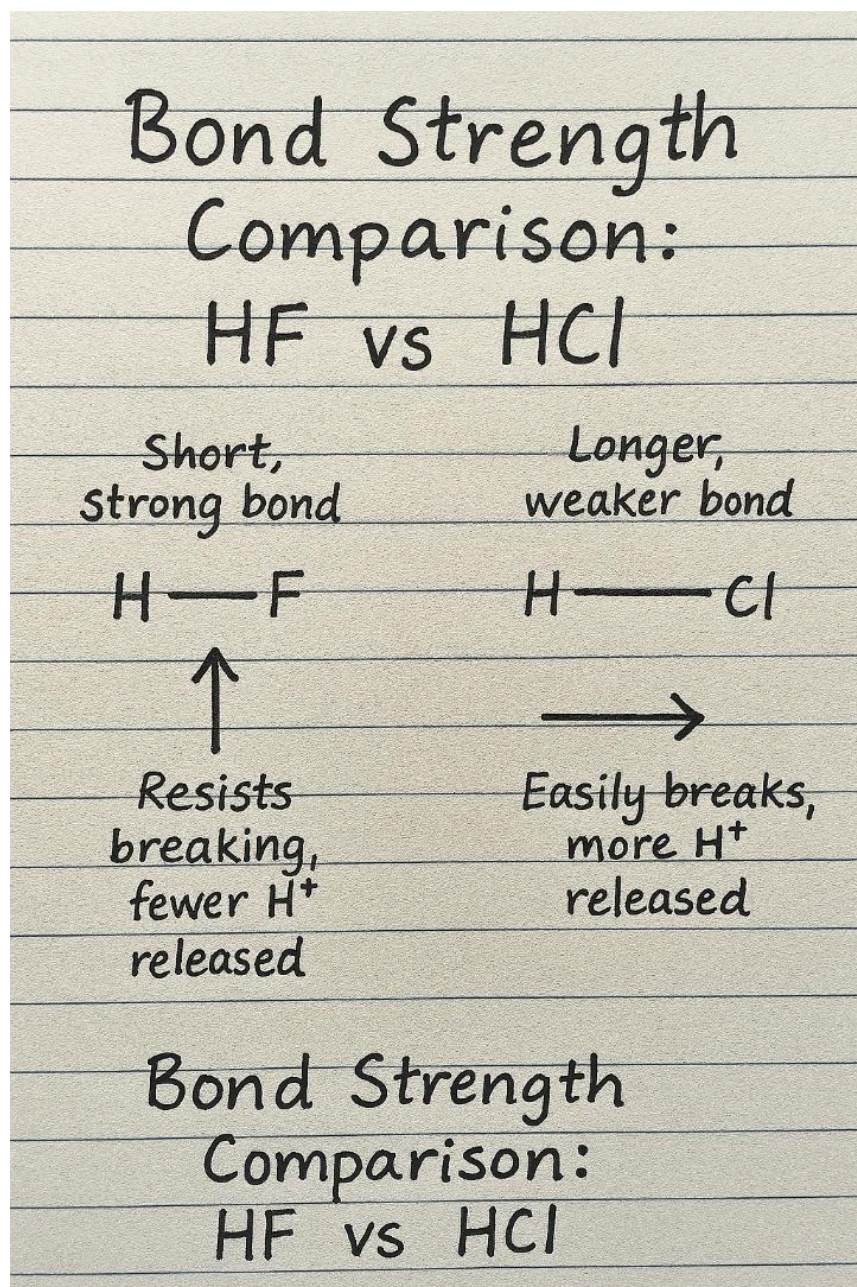 Bond Strength
Comparison:
HF vs HCl
Short,
strong bond
H — F
Resists
breaking,
fewer H⁺
released
Longer,
weaker bond
H — Cl
Easily breaks,
more H⁺
released
Bond Strength
Comparison:
HF vs HCl